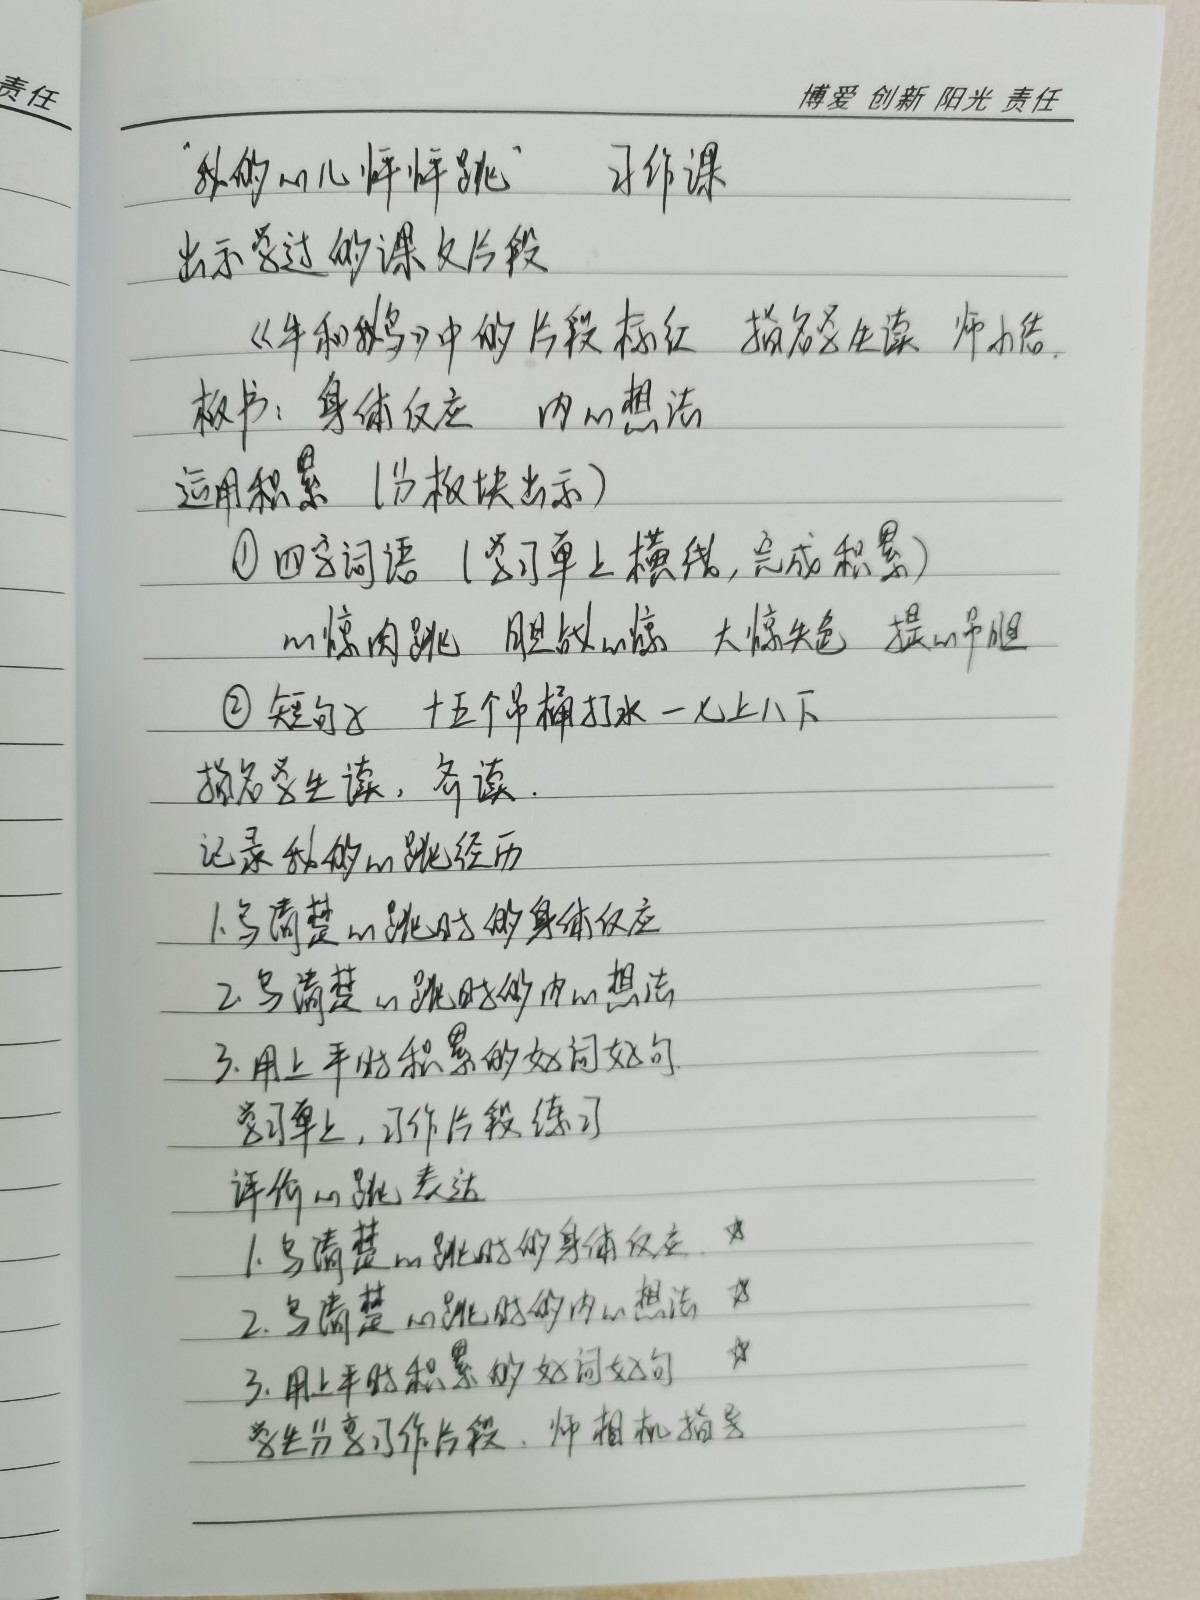 责任
博爱 创新 阳光 责任
"我的心儿怦怦跳" 习作课
出示学过的课文片段
《牛和鹅》中的片段标红 指名学生读 师小结.
板书: 身体反应 内心想法
运用积累 (分板块出示)
① 四字词语 (学习单上横线, 完成积累)
心惊肉跳 胆战心惊 大惊失色 提心吊胆
② 短句子 十五个吊桶打水一七上八下
指名学生读, 齐读.
记录我的心跳经历
1. 写清楚心跳时的身体反应
2. 写清楚心跳时的内心想法
3. 用上平时积累的好词好句.
学习单上, 习作片段练习
评价心跳表达
1. 写清楚心跳时的身体反应. ☆
2. 写清楚心跳时的内心想法 ☆
3. 用上平时积累的好词好句 ☆
学生分享习作片段. 师相机指导